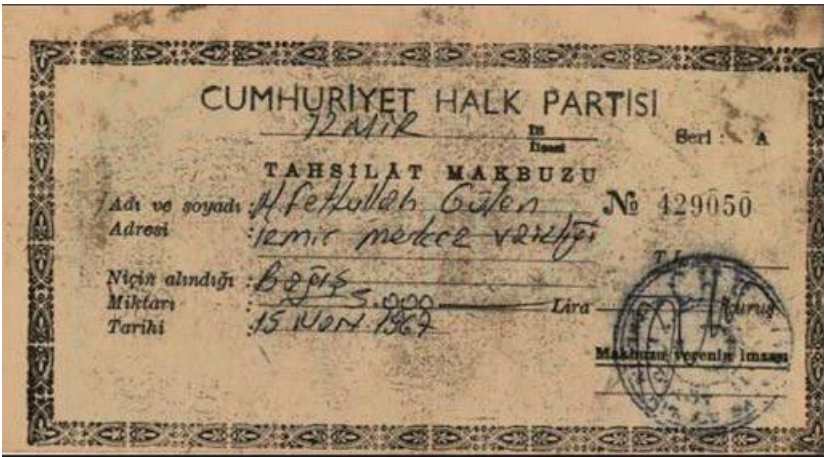 CUMHURİYET HALK PARTİSİ
İZMİR İli
İlçesi
Seri : A
TAHSİLÂT MAKBUZU
Adı ve soyadı : H. Fethullah Gülen
№ 429050
Adresi : izmir merkez vaizliği
T. L.
Niçin alındığı : Bağış
Miktarı : 5.000 Lira Kuruş
Tarihi : 15 1967
Makbuzu verenin imzası